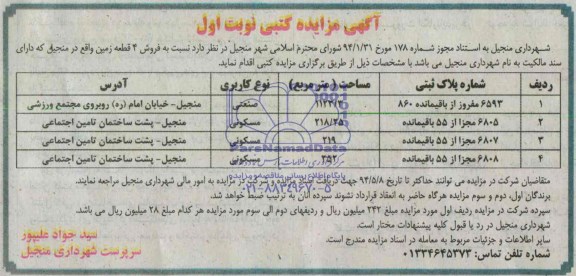 آگهی مزایده کتبی نوبت اول
شهرداری منجیل به استناد مجوز شماره ۱۷۸ مورخ ۹۴/۱/۳۱ شورای محترم اسلامی شهر منجیل در نظر دارد نسبت به فروش ۴ قطعه زمین واقع در منجیل که دارای
سند مالکیت به نام شهرداری منجیل می باشد با مشخصات ذیل از طریق برگزاری مزایده کتبی اقدام نماید.
ردیف شماره پلاک ثبتی مساحت (مترمربع) نوع کاربری آدرس
۱ ۶۵۹۳ مفروز از باقیمانده ۸۶۰ ۱۱۲۳/۴ صنعتی منجیل- خیابان امام (ره) روبروی مجتمع ورزشی
۲ ۶۸۰۵ مجزا از ۵۵ باقیمانده ۲۱۸/۲۵ مسکونی منجیل- پشت ساختمان تامین اجتماعی
۳ ۶۸۰۷ مجزا از ۵۵ باقیمانده ۲۱۹ مسکونی منجیل- پشت ساختمان تامین اجتماعی
۴ ۶۸۰۸ مجزا از ۵۵ باقیمانده ۲۵۲ مسکونی منجیل- پشت ساختمان تامین اجتماعی
متقاضیان شرکت در مزایده می توانند حداکثر تا تاریخ ۹۴/۵/۸ جهت دریافت اسناد مزایده و شرکت در مزایده به امور مالی شهرداری منجیل مراجعه نمایند.
برندگان اول، دوم و سوم مزایده هرگاه حاضر به انعقاد قرارداد نشوند سپرده آنان به ترتیب ضبط خواهد شد.
سپرده شرکت در مزایده ردیف اول مورد مزایده مبلغ ۲۴۲ میلیون ریال و ردیفهای دوم الی سوم مورد مزایده هر کدام مبلغ ۲۸ میلیون ریال می باشد.
شهرداری منجیل در رد یا قبول کلیه پیشنهادات مختار است.
سایر اطلاعات و جزئیات مربوط به معامله در اسناد مزایده مندرج است.
شماره تلفن تماس: ۰۱۳۳۴۶۴۵۳۷۳
سید جواد علیپور
سرپرست شهرداری منجیل
ParsNamadData
پایگاه اطلاع رسانی مناقصه و مزایده
۰۲۱-۸۸۳۴۹۶۷۰-۵